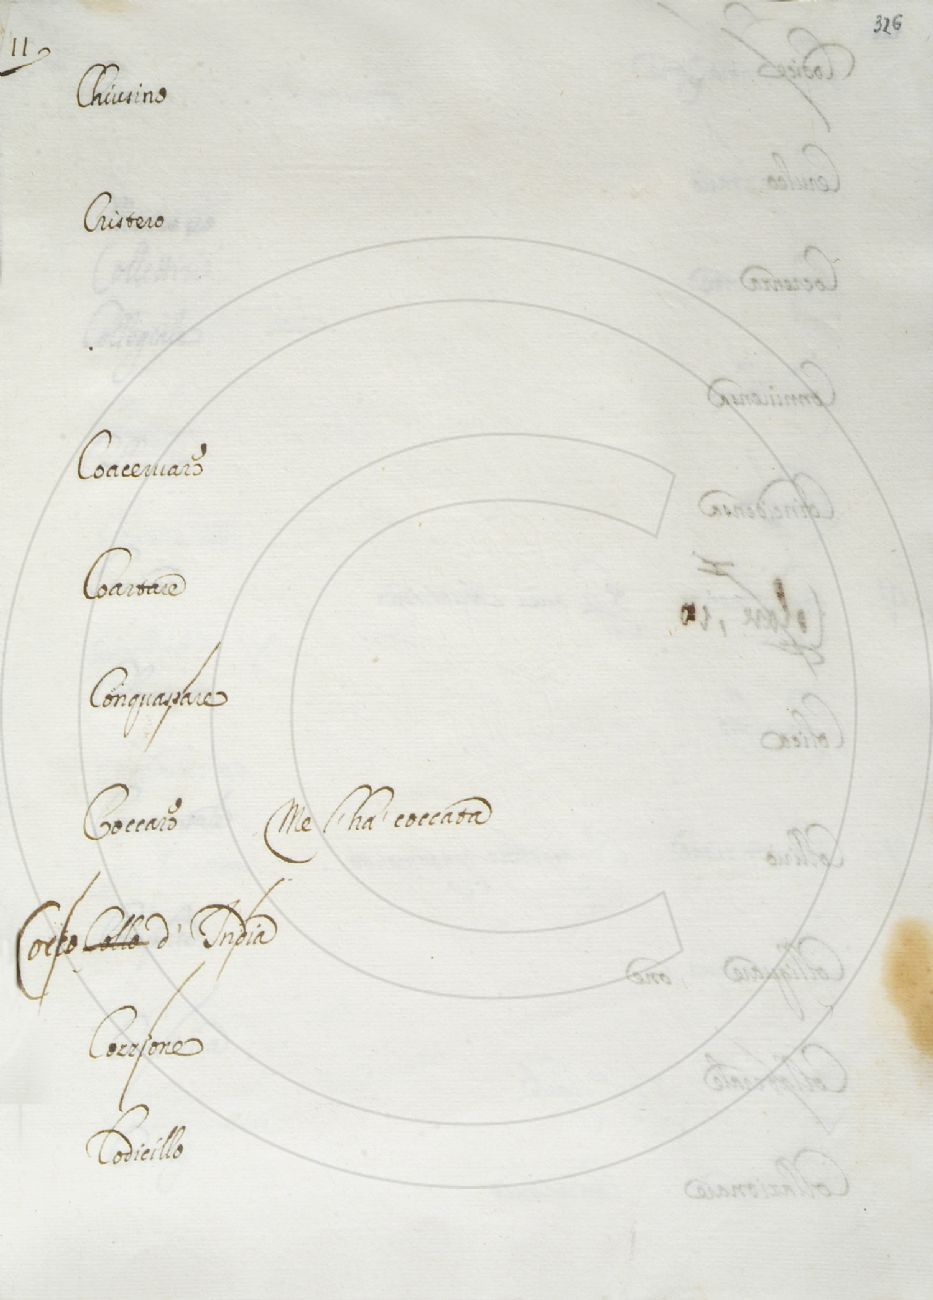 326
11
Chiusino
Cristero
Coacervare
Coartare
Conquassare
Coccare Me l'ha coccata
Cocco Collo d' India
Cozzone
Codicillo